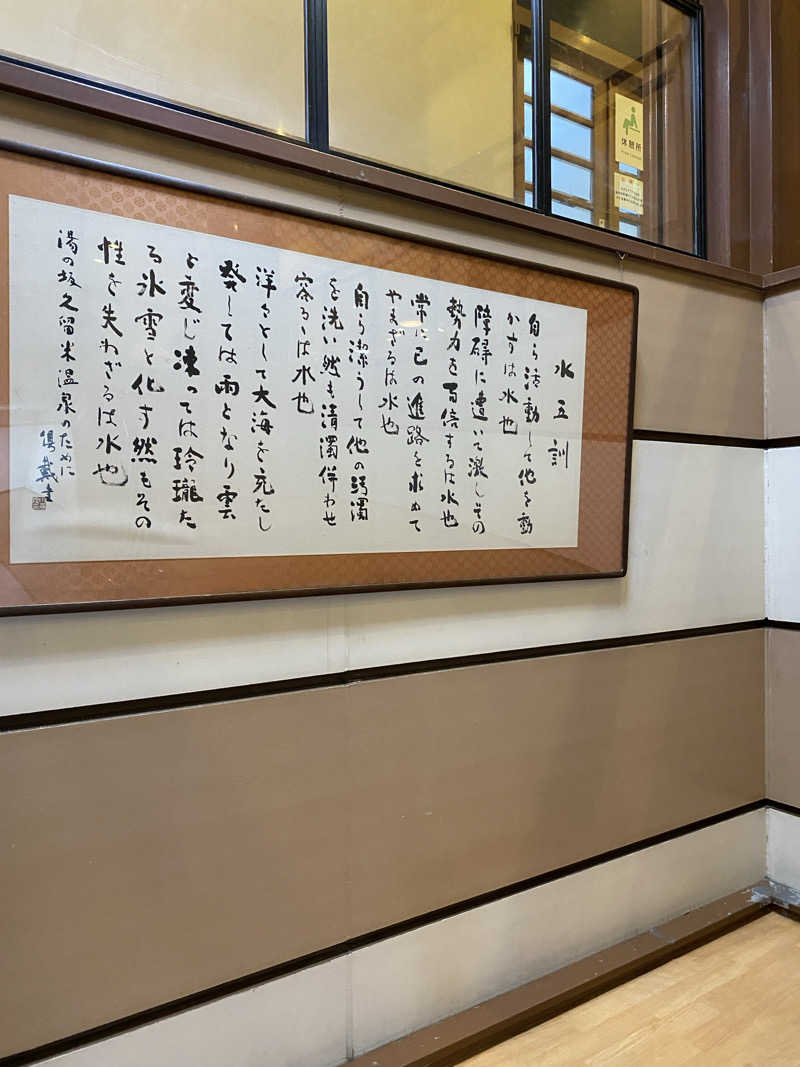 水五訓
自ら活動して他を動
かすは水也
障碍に遭いて激しその
勢力を百倍するは水也
常に己の進路を求めて
やまざるは水也
自ら潔うして他の汚濁
を洗い然も清濁併わせ
容るゝは水也
洋々として大海を充たし
発しては雨となり雲
と変じ凍っては玲瓏た
る氷雪と化す然もその
性を失わざるは水也
湯の坂久留米温泉のために
休憩所